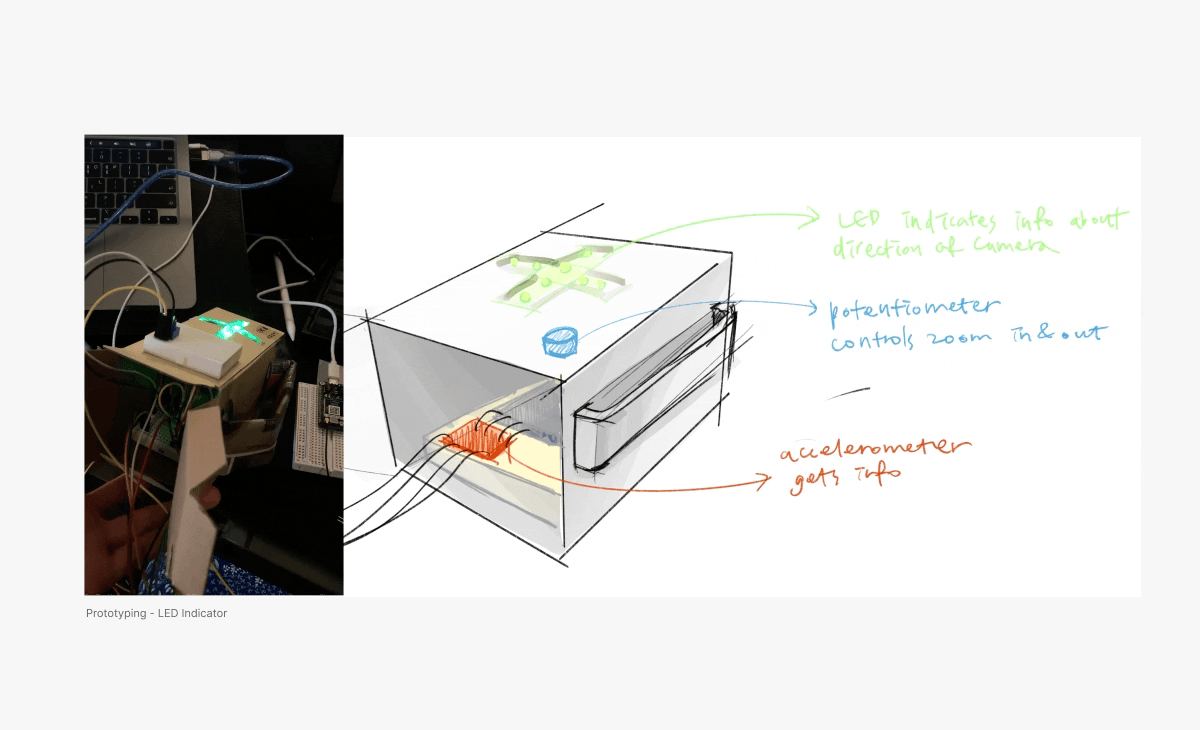 LED indicates info about
direction of Camera
potentiometer
controls zoom in & out
accelerometer
gets info
Prototyping - LED Indicator